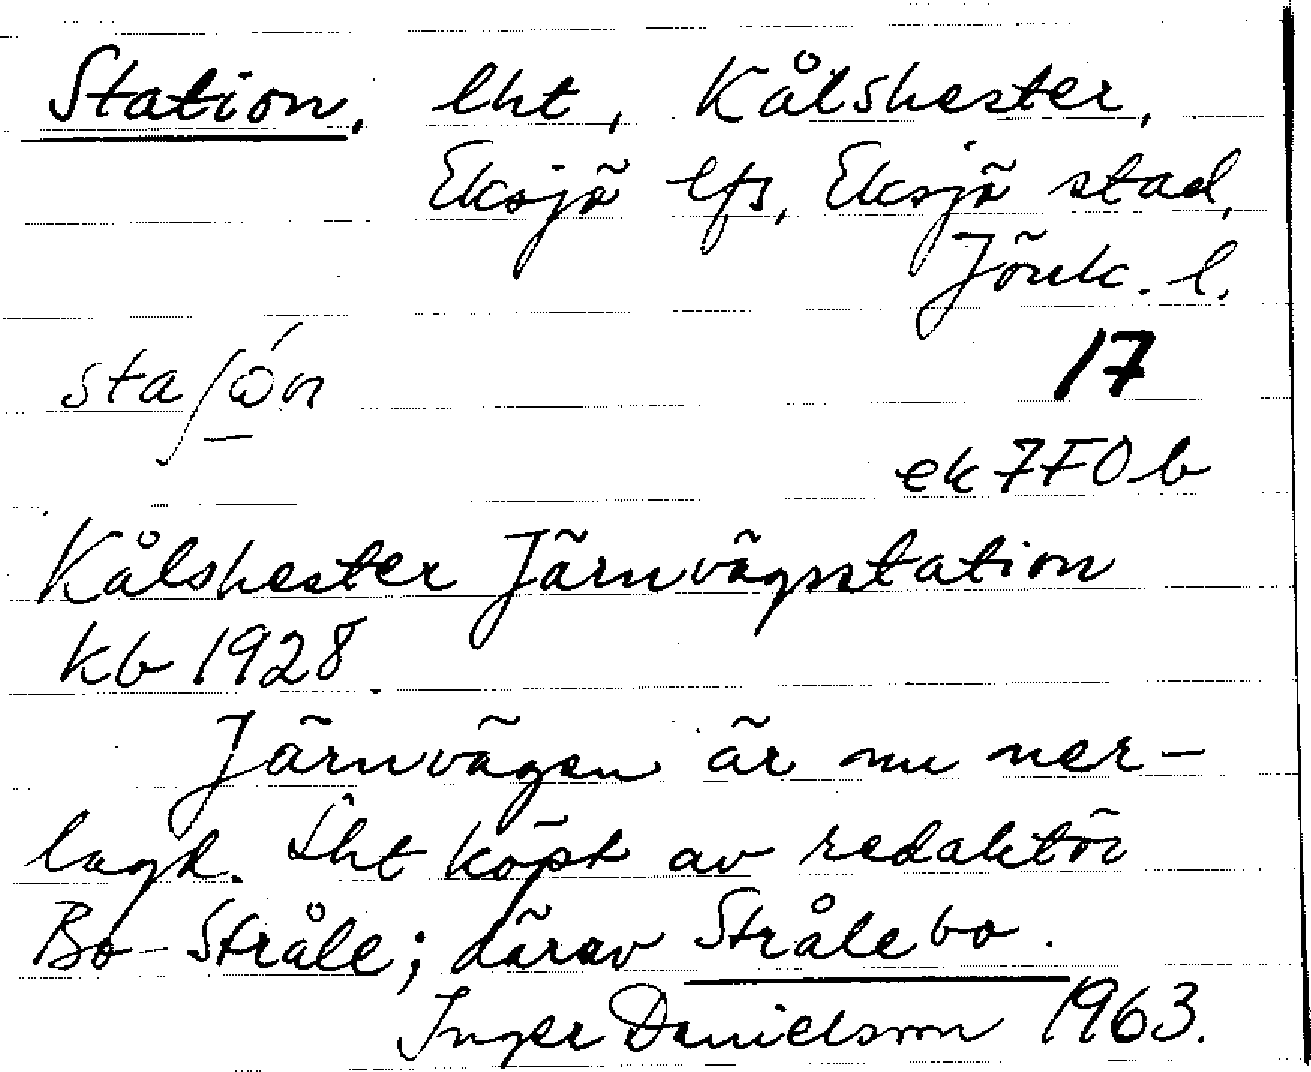 Station, lht, Kålshester,
Eksjö lfs, Eksjö stad,
Jönk. l.
staʃώn
17
ek 7F0b
Kålshester Järnvägsstation
kb 1928
Järnvägen är nu ner-
lagd. Lht köpt av redaktör
Bo Stråle; därav Strålebo.
Inger Danielsson 1963.